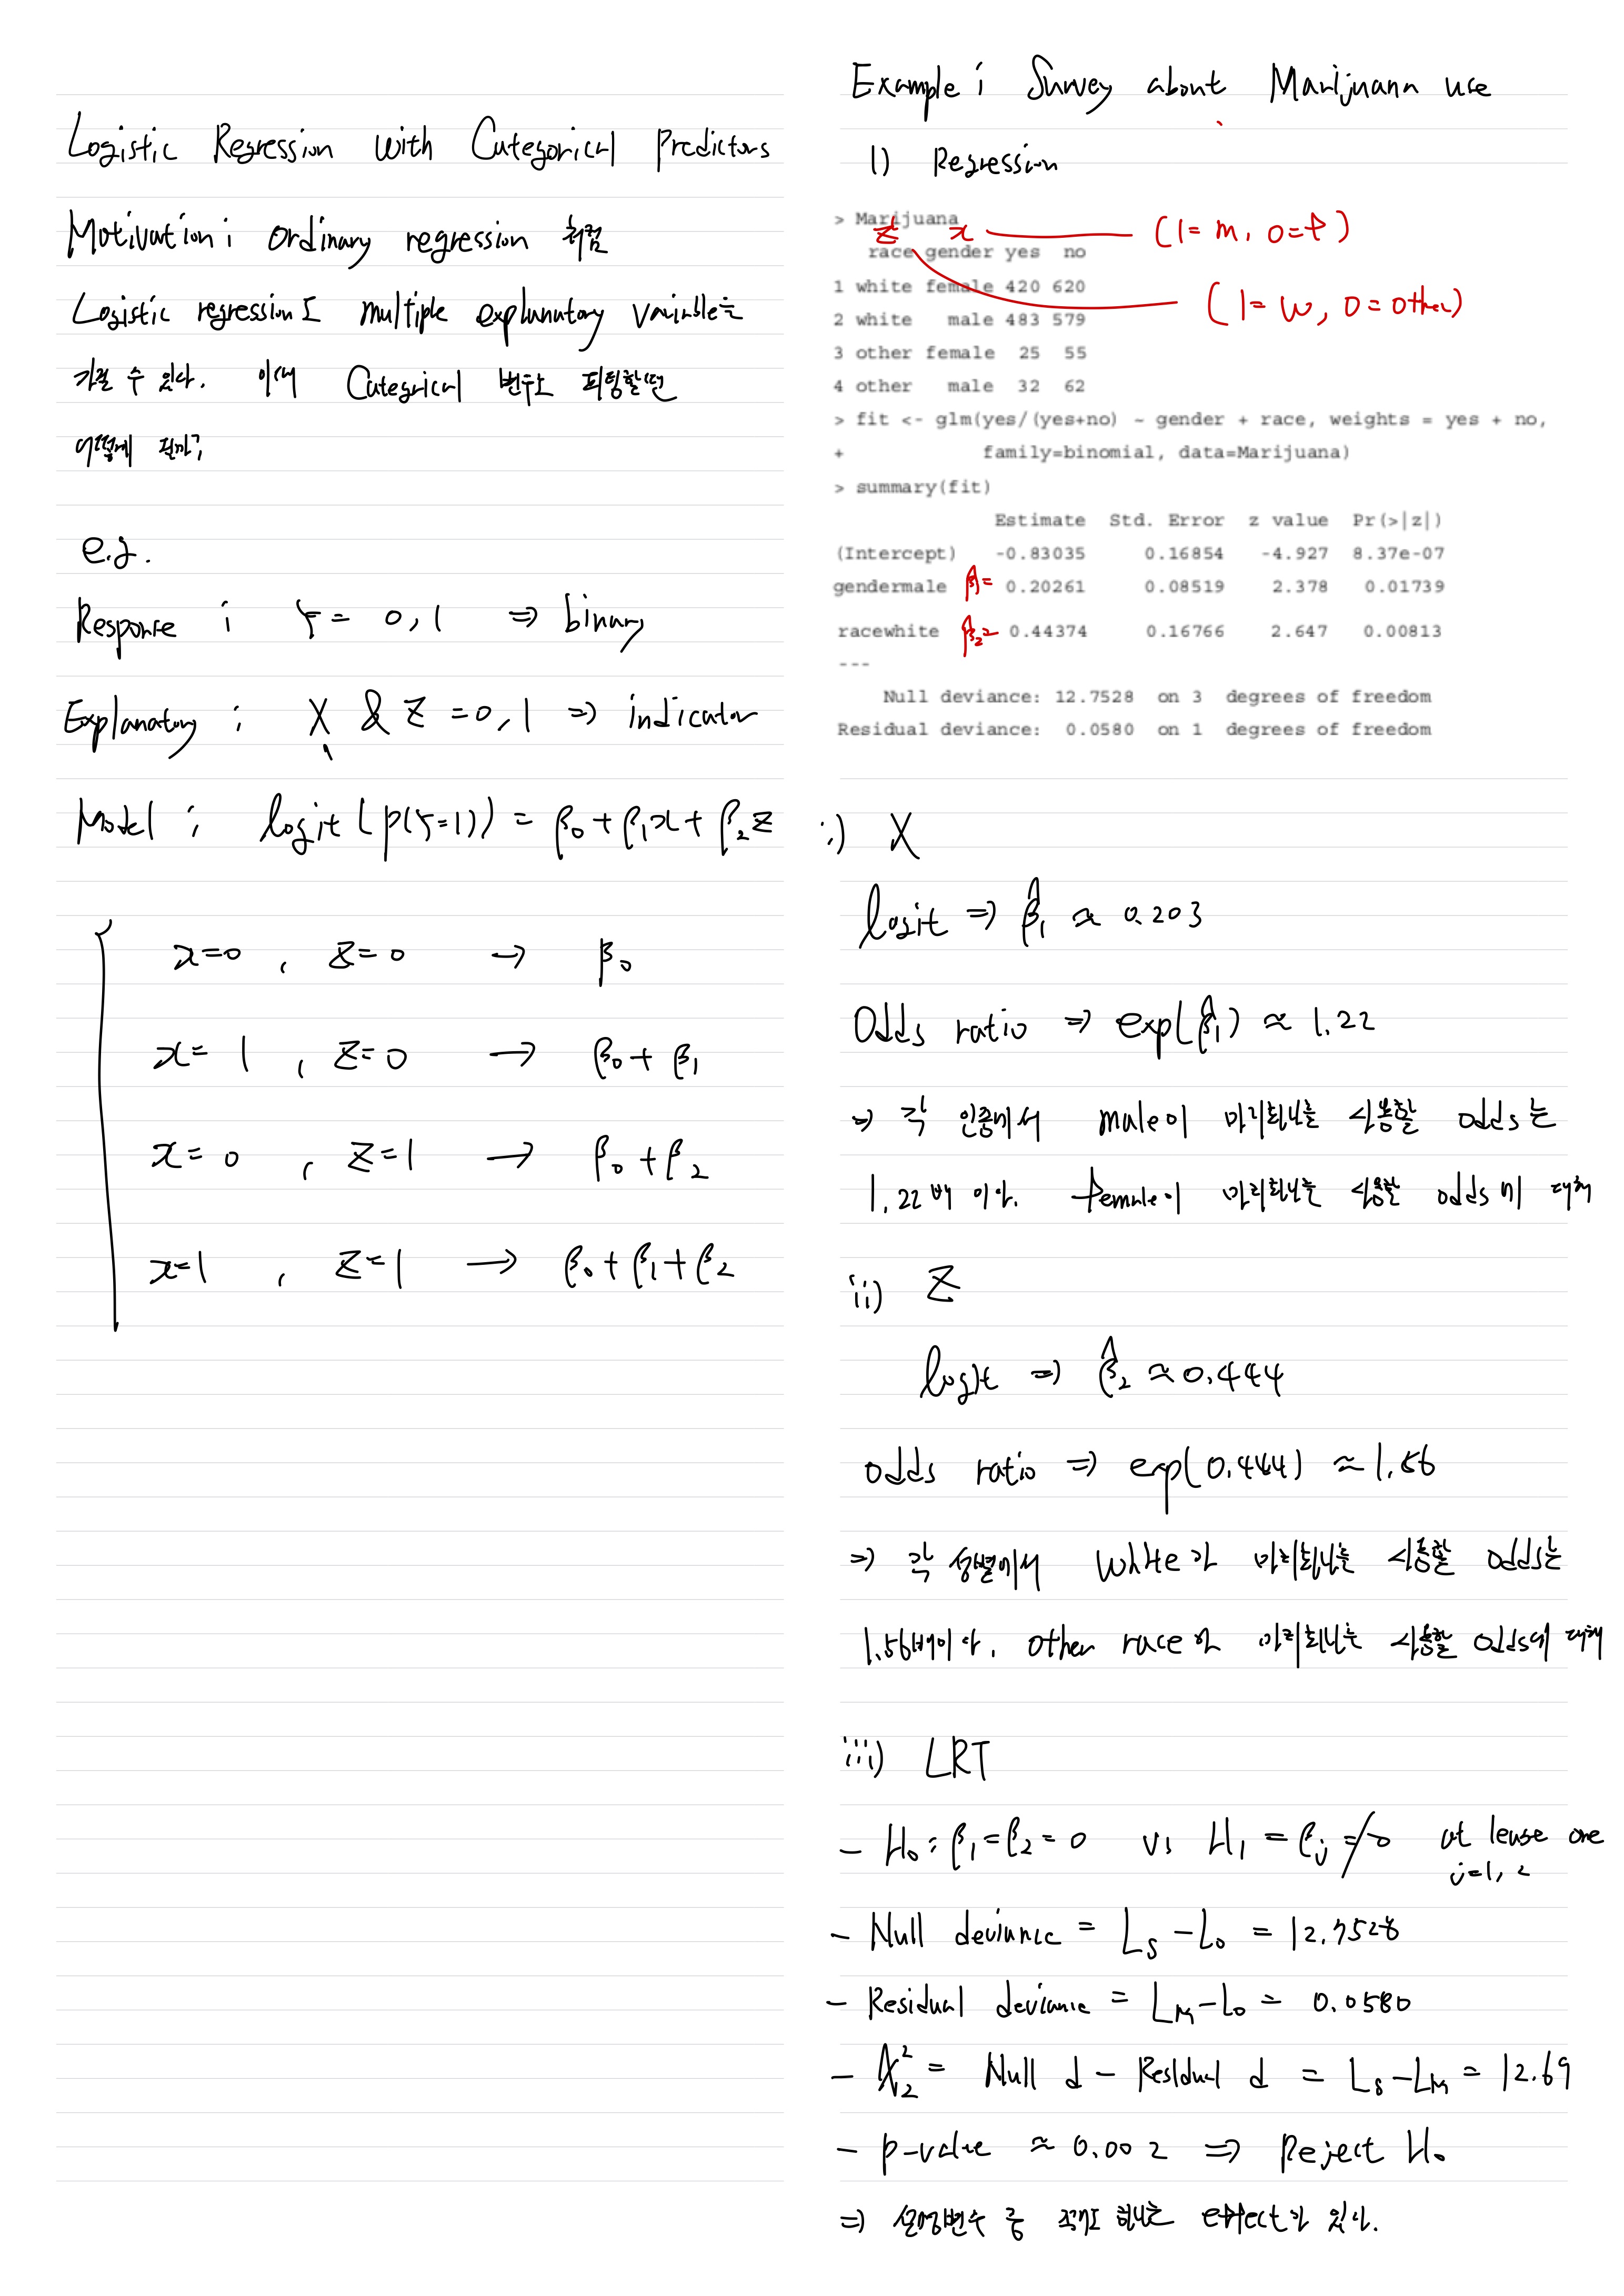 Logistic Regression with Categorical Predictors
Motivation ; ordinary regression 처럼
Logistic regression도 multiple explanatory variable을
가질 수 있다. 이때 Categrical 변수로 피팅할땐
어떻게 될까?
e.g.
Response ; Y = 0, 1 ⇒ binary
Explanatory ; X & Z = 0, 1 ⇒ indicator
Model ; logit(P(Y=1)) = β₀ + β₁x + β₂z
x=0 , z=0 → β₀
x=1 , z=0 → β₀ + β₁
x=0 , z=1 → β₀ + β₂
x=1 , z=1 → β₀ + β₁ + β₂
Example ; Survey about Marijuana use
1) Regression
> Marijuana
z x (1=m, 0=f)
race gender yes no
1 white female 420 620
(1=w, 0=other)
2 white male 483 579
3 other female 25 55
4 other male 32 62
> fit <- glm(yes/(yes+no) ~ gender + race, weights = yes + no,
+ family=binomial, data=Marijuana)
> summary(fit)
Estimate Std. Error z value Pr(>|z|)
(Intercept) -0.83035 0.16854 -4.927 8.37e-07
gendermale β̂₁= 0.20261 0.08519 2.378 0.01739
racewhite β̂₂= 0.44374 0.16766 2.647 0.00813
---
Null deviance: 12.7528 on 3 degrees of freedom
Residual deviance: 0.0580 on 1 degrees of freedom
i) X
logit ⇒ β̂₁ ≈ 0.203
Odds ratio ⇒ exp(β̂₁) ≈ 1.22
⇒ 각 인종에서 male이 마리화나를 사용할 odds는
1.22배 이다. female이 마리화나를 사용할 odds에 대해
ii) Z
logit ⇒ β̂₂ ≈ 0.444
odds ratio ⇒ exp(0.444) ≈ 1.56
⇒ 각 성별에서 white가 마리화나를 사용할 odds는
1.56배이다. other race가 마리화나를 사용할 odds에 대해
iii) LRT
- H₀ : β₁ = β₂ = 0 vs H₁ = βj ≠ 0 at lease one
j=1, 2
- Null deviance = Ls - L₀ = 12.7528
- Residual deviance = LM - L₀ = 0.0580
- X²₂ = Null d - Residual d = Ls - LM = 12.69
- p-value ≈ 0.002 ⇒ Reject H₀
⇒ 설명변수 중 적어도 하나는 effect가 있다.